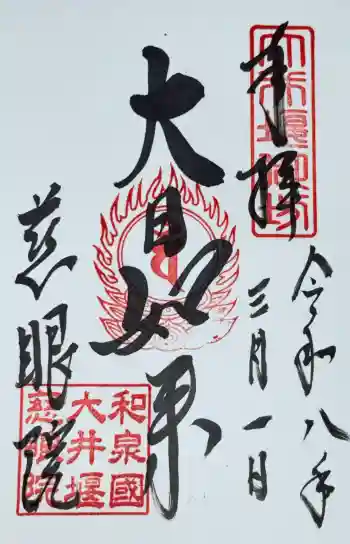 奉拝
令和八年
三月一日
大日如来
慈眼院
和泉國
大井堰
慈眼院